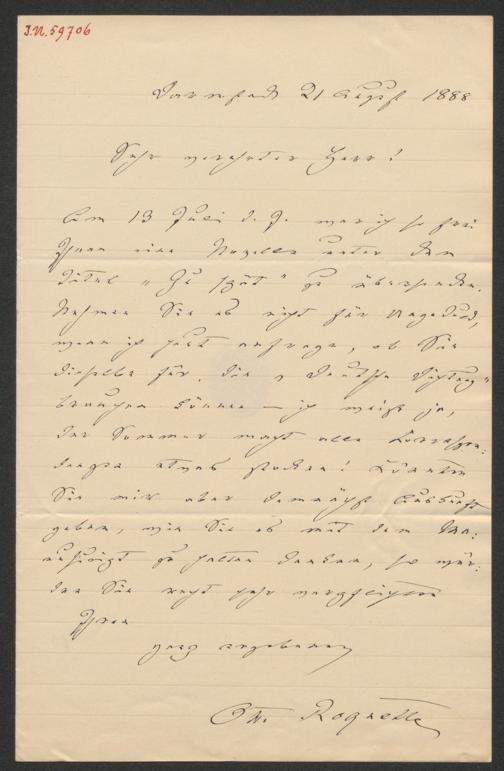 J.N. 59706
Darmstadt 21 August 1888
Sehr verehrter Herr!
Am 13 Juli d. J. war ich so frei
Ihnen eine Novelle unter dem
Titel "Zu spät" zu übersenden.
Nehmen Sie es nicht für Ungeduld,
wenn ich heut anfrage, ob Sie
dieselbe für die "Deutsche Dichtung"
brauchen können — ich weiß ja,
der Sommer macht alle Correspon:
denzen etwas stocken! Könnten
Sie mir aber demnächst Auskunft
geben, wie Sie es mit dem Ma:
nuscript zu halten denken, so wür:
den Sie recht sehr verpflichten
Ihren
ganz ergebenen
Otto Roquette